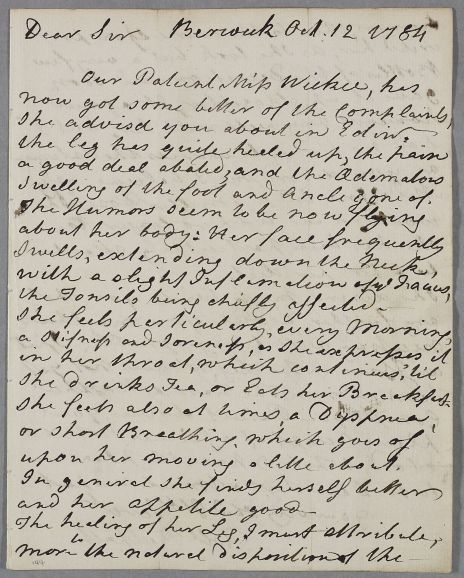 Dear Sir Berwick Oct. 12 1784
Our Patient Miss Wilkee, has
now got some better of the Complaints,
she advisd you about in Edinr.
the leg has quite heeled up, the pain
a good deal abated, and the Œdematous
Swelling of the foot and Ancle gone of.
The Humors seem to be now flying
about her body: Her face frequently
Swells, extending down the Neck,
with a slight Inflamation of ye Fauces,
the Tonsils being chiefly affected.
She feels particularly, every Morning,
a Stifness and Soreness, as She expresses it
in her throat, which continues, 'til
She drinks Tea, or Eats her Breakfast.
She feels also at times, a Dyspnea,
or short Breathing, which goes of
upon her moving a little about.
In general she finds herself better
and her appetite good
The healing of her Leg, I must attribute,
more to the natural disposition of the